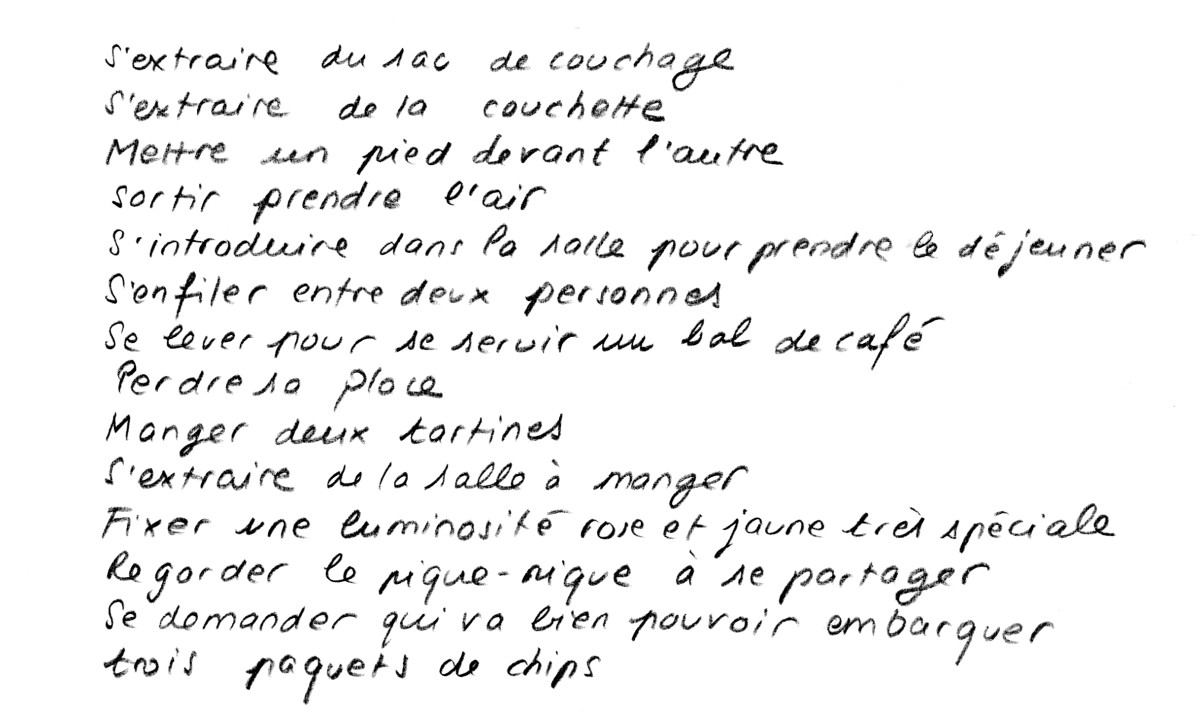 S'extraire du sac de couchage
S'extraire de la couchette
Mettre un pied devant l'autre
Sortir prendre l'air
S'introduire dans la salle pour prendre le déjeuner
S'enfiler entre deux personnes
Se lever pour se servir un bol de café
Perdre sa place
Manger deux tartines
S'extraire de la salle à manger
Fixer une luminosité rose et jaune très spéciale
Regarder le pique-nique à se partager
Se demander qui va bien pouvoir embarquer
trois paquets de chips